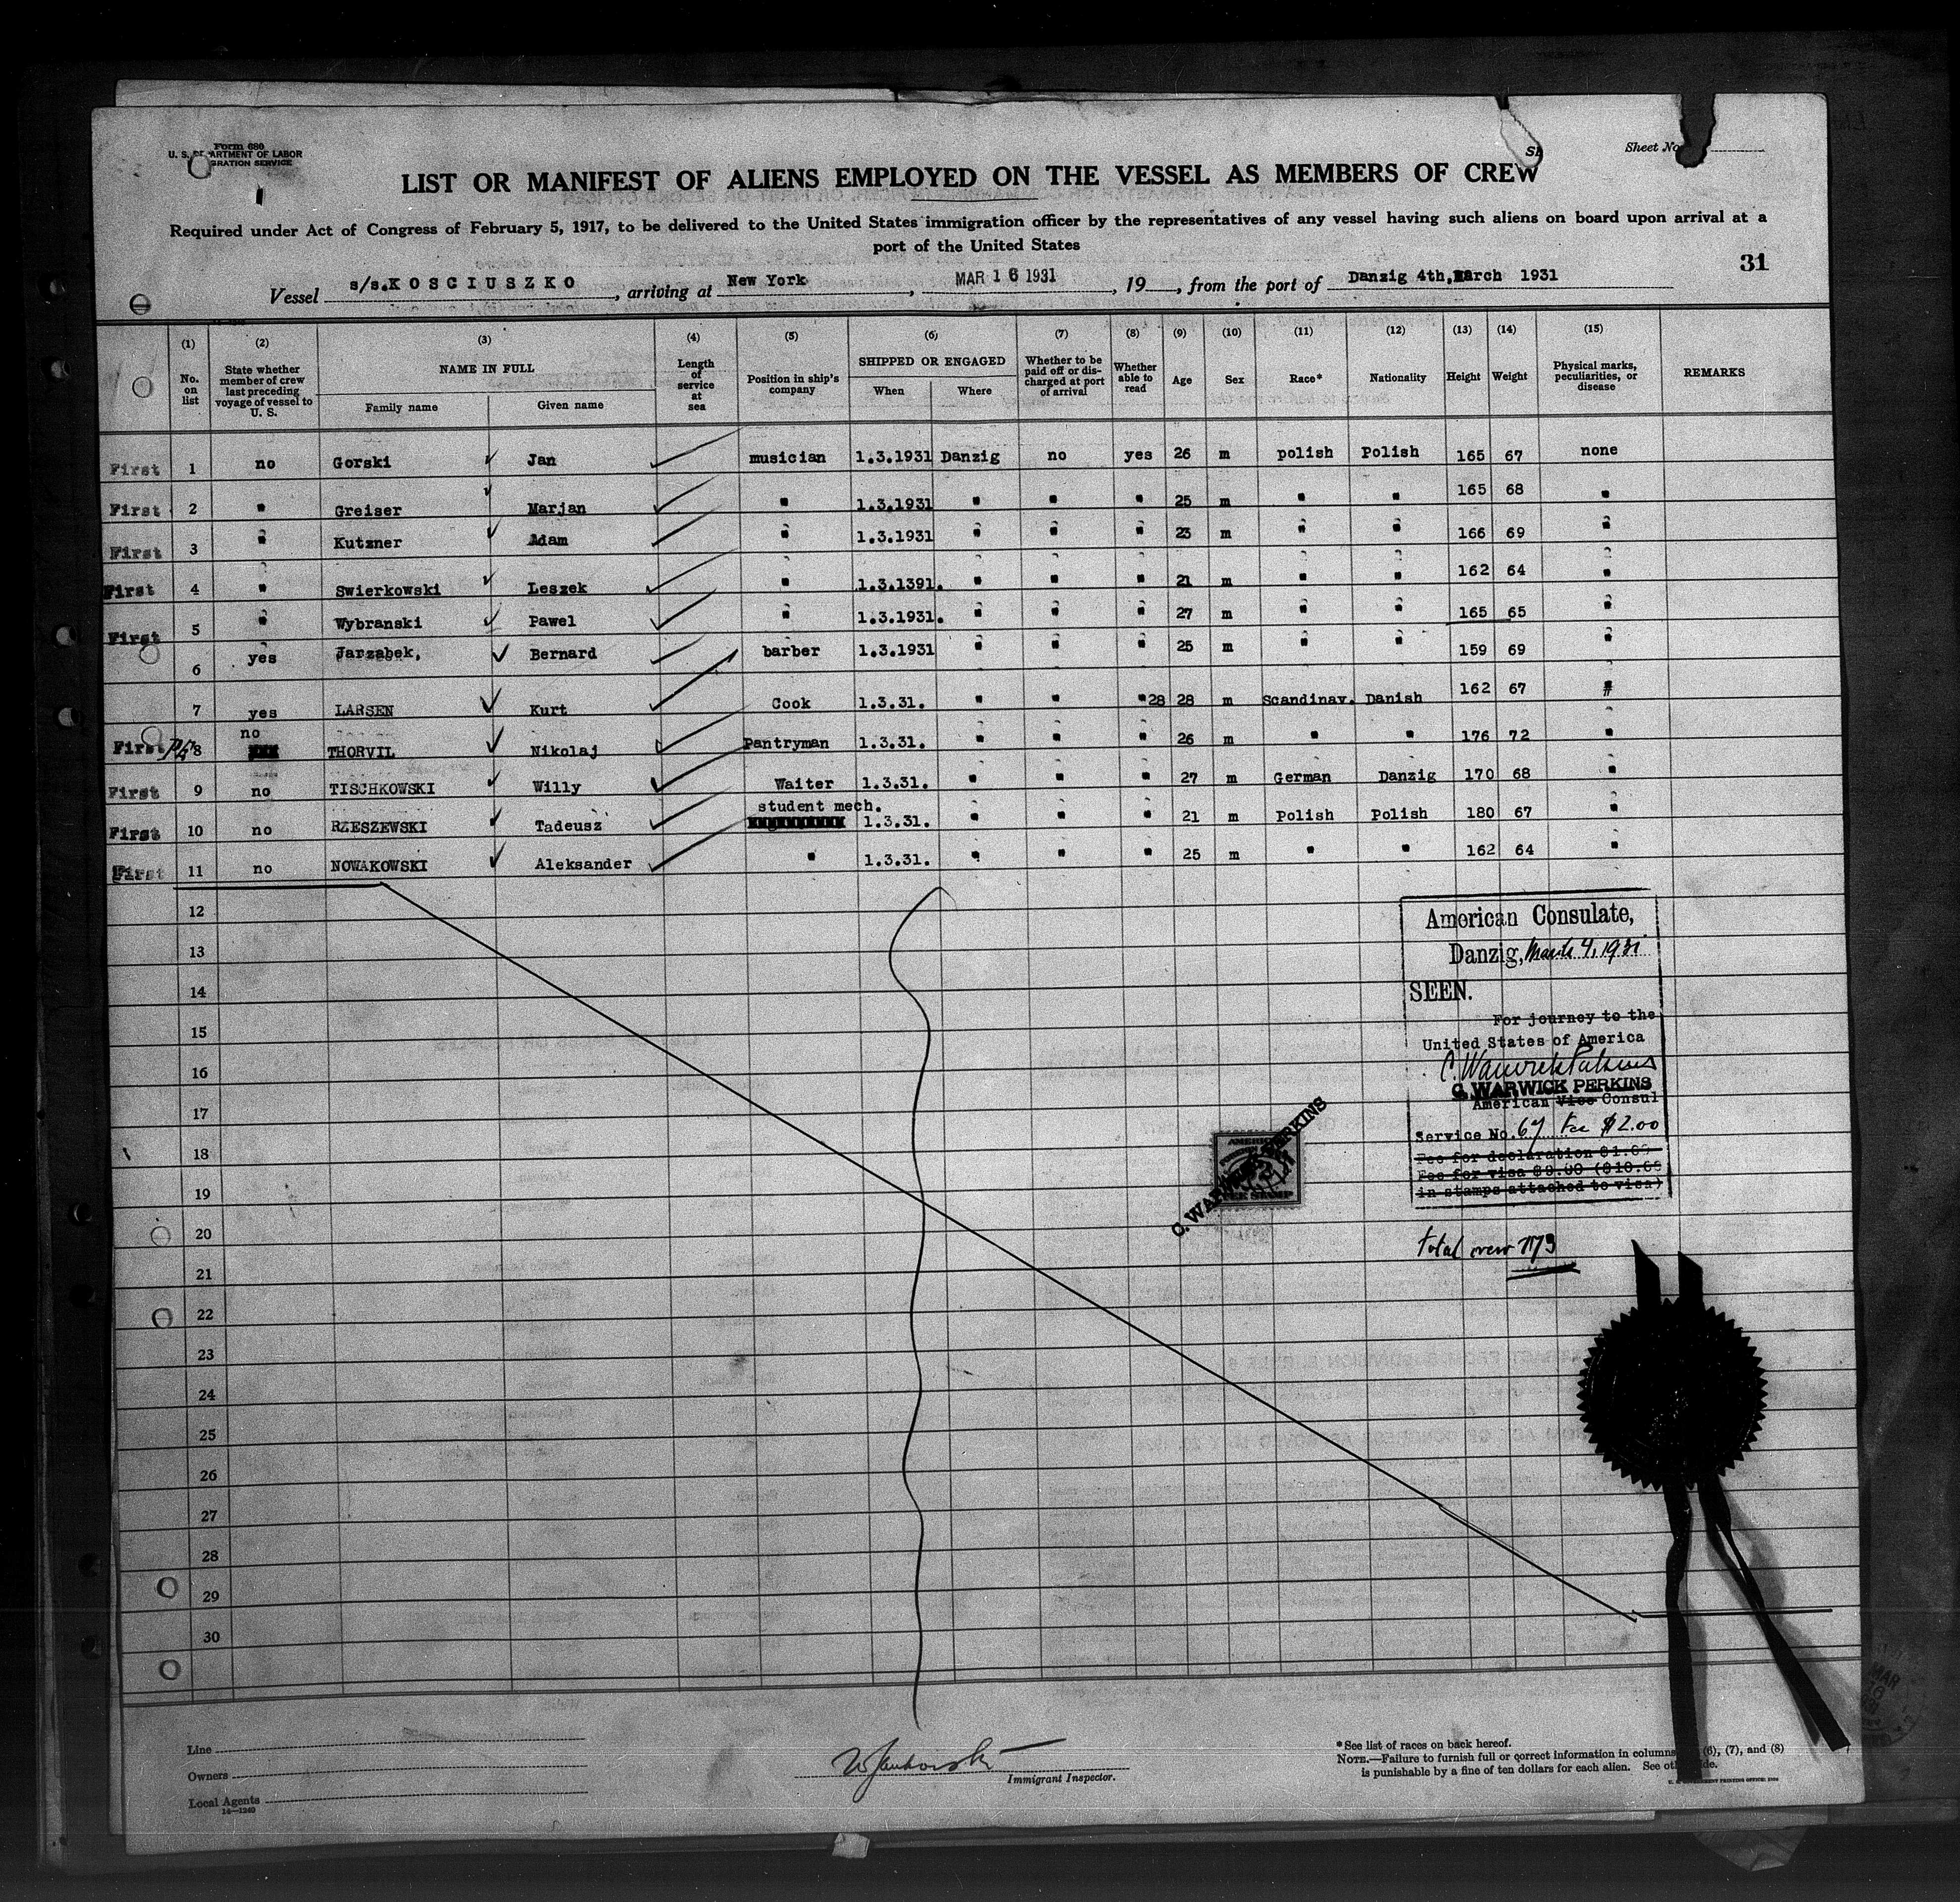 Form 680
U. S. DEPARTMENT OF LABOR
IMMIGRATION SERVICE
Sheet No.
LIST OR MANIFEST OF ALIENS EMPLOYED ON THE VESSEL AS MEMBERS OF CREW
Required under Act of Congress of February 5, 1917, to be delivered to the United States immigration officer by the representatives of any vessel having such aliens on board upon arrival at a
port of the United States
31
Vessel s/s.KOSCIUSZKO, arriving at New York, MAR 16 1931, 19 , from the port of Danzig 4th,March 1931
(1) (2) (3) (4) (5) (6) (7) (8) (9) (10) (11) (12) (13) (14) (15)
No. on list
State whether member of crew last preceding voyage of vessel to U. S.
NAME IN FULL
Family name Given name
Length of service at sea
Position in ship's company
SHIPPED OR ENGAGED
When Where
Whether to be paid off or discharged at port of arrival
Whether able to read
Age Sex Race* Nationality Height Weight
Physical marks, peculiarities, or disease
REMARKS
First 1 no Gorski Jan musician 1.3.1931 Danzig no yes 26 m polish Polish 165 67 none
First 2 " Greiser Marjan " 1.3.1931 " " " 25 m " " 165 68 "
First 3 " Kutzner Adam " 1.3.1931 " " " 23 m " " 166 69 "
First 4 " Swierkowski Leszek " 1.3.1391. " " " 21 m " " 162 64 "
First 5 " Wybranski Pawel " 1.3.1931. " " " 27 m " " 165 65 "
6 yes Jarzabek, Bernard barber 1.3.1931 " " " 25 m " " 159 69 "
7 yes LARSEN Kurt Cook 1.3.31. " " "28 28 m Scandinav. Danish 162 67 "
First 8 no THORVIL Nikolaj Pantryman 1.3.31. " " " 26 m " " 176 72 "
First 9 no TISCHKOWSKI Willy Waiter 1.3.31. " " " 27 m German Danzig 170 68 "
First 10 no RZESZEWSKI Tadeusz student mech. 1.3.31. " " " 21 m Polish Polish 180 67 "
First 11 no NOWAKOWSKI Aleksander " 1.3.31. " " " 25 m " " 162 64 "
12
13
14
15
16
17
18
19
20
21
22
23
24
25
26
27
28
29
30
American Consulate,
Danzig, March 4, 1931
SEEN.
For journey to the
United States of America
C. Warwick Perkins
C. WARWICK PERKINS
American Vice Consul
Service No. 67 Fee $2.00
Fee for declaration $1.00
Fee for visa $9.00 ($10.00
in stamps attached to visa)
C. WARWICK PERKINS
total crew 173
Line
Owners
Local Agents
14—1240
Immigrant Inspector.
*See list of races on back hereof.
NOTE.—Failure to furnish full or correct information in columns (6), (7), and (8)
is punishable by a fine of ten dollars for each alien. See other side.